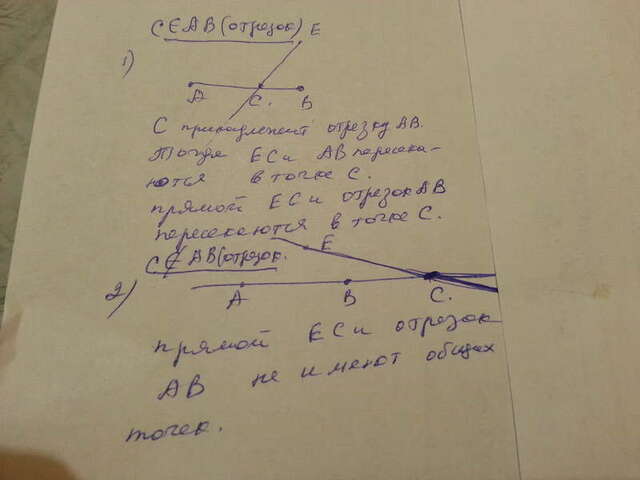 C ∈ AB (отрезок) E
1)
A C. B
C принадлежит отрезку AB.
Тогда EC и AB пересека-
ются в точке C.
прямой EC и отрезок AB
пересекаются в точке C.
C ∉ AB (отрезок. E
2) A B C.
прямой EC и отрезок
AB не имеют общих
точек.